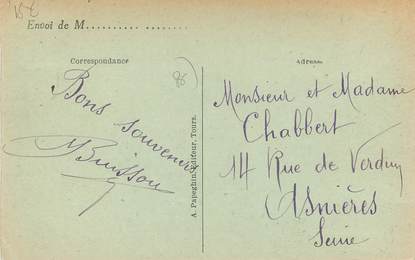 15€
Envoi de M.......... ........
Correspondance
Adresse
Bons souvenirs
MBuisson
A. Papeghin, Editeur, Tours.
Monsieur et Madame
Chabbert
14 Rue de Verdun
Asnières
Seine